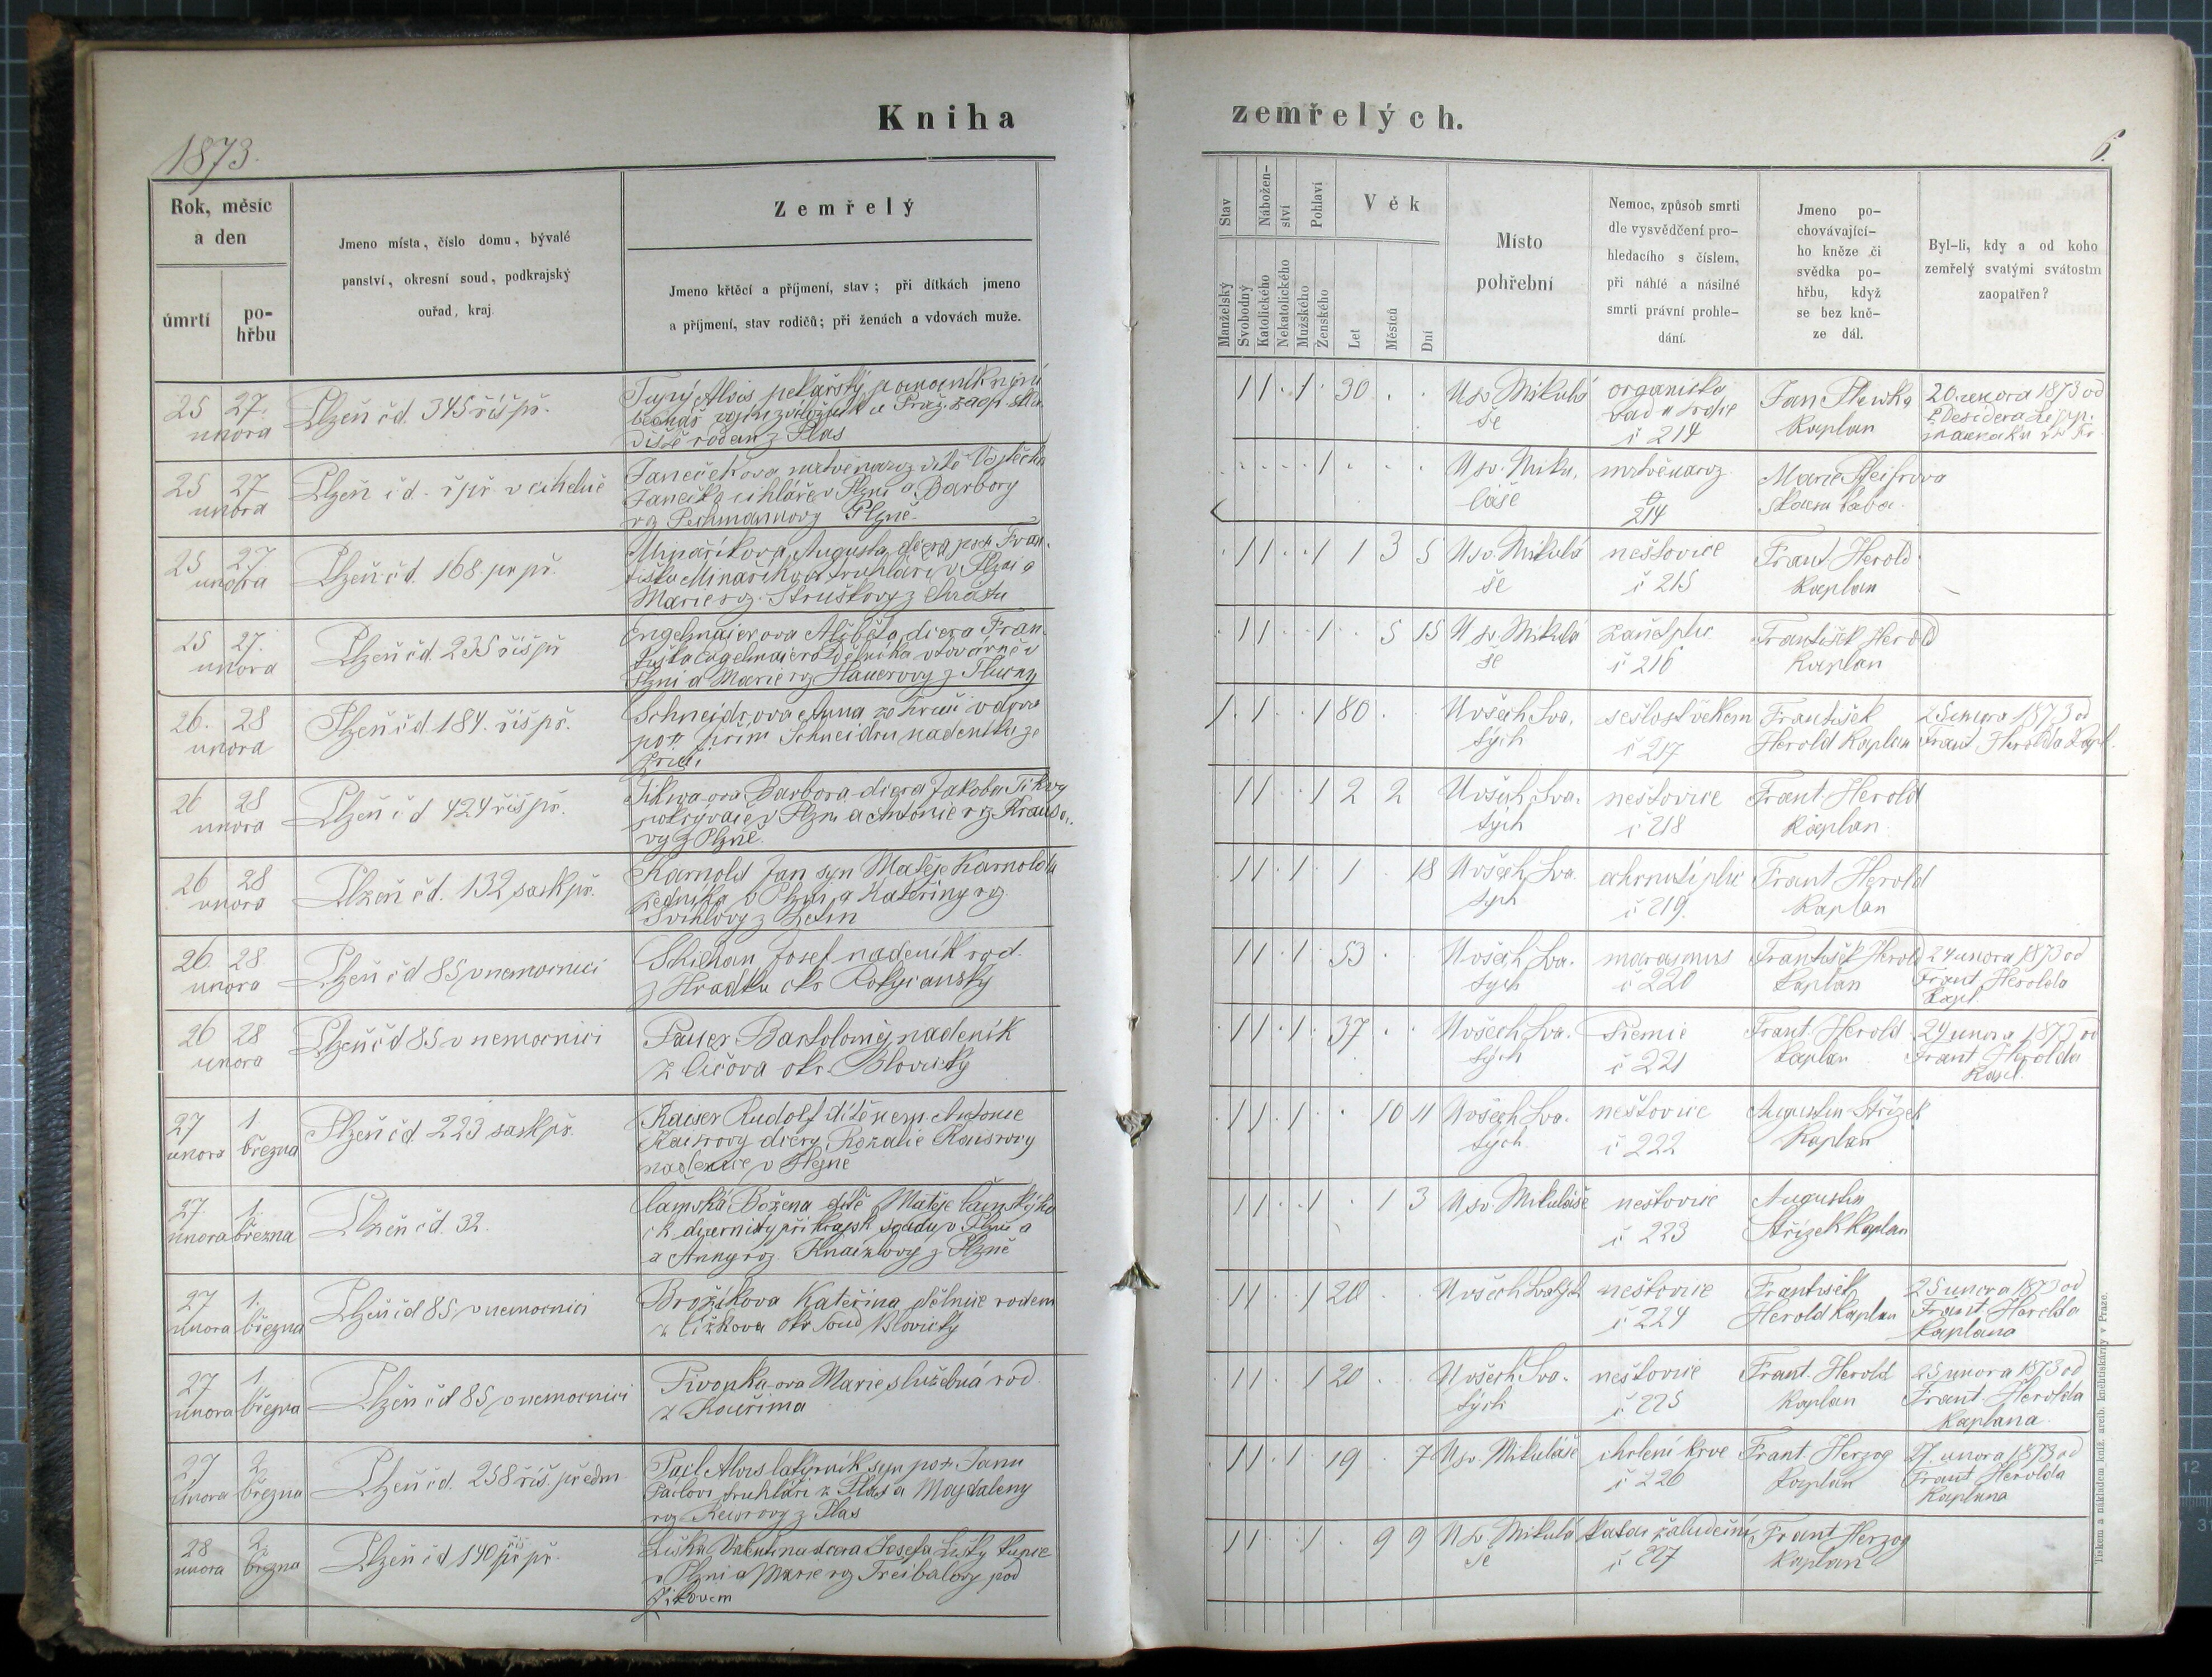 Kniha
zemřelých.
1873.
6.
Rok, měsíc
a den
úmrtí
po-
hřbu
Jmeno místa, číslo domu, bývalé
panství, okresní soud, podkrajský
ouřad, kraj.
Zemřelý
Jmeno křtěcí a příjmení, stav; při dítkách jmeno
a příjmení, stav rodičů; při ženách a vdovách muže.
Stav
Manželský
Svobodný
Nábožen-
ství
Katolického
Nekatolického
Pohlaví
Mužského
Ženského
Věk
Let
Měsíců
Dní
Místo
pohřební
Nemoc, způsob smrti
dle vysvědčení pro-
hledacího s číslem,
při náhlé a násilné
smrti právní prohle-
dání.
Jmeno po-
chovávající-
ho kněze či
svědka po-
hřbu, když
se bez kně-
ze dál.
Byl-li, kdy a od koho
zemřelý svatými svátostmi
zaopatřen?
25 27.
unora
Plzeň čd. 345 říš př.
Tupý Alois pekařský pomocník nyní
rodem z Plas
30
U sv. Mikulá
še
organická
vad u srdce
č 214
Jan
Kaplan
20. unora 1873 od
25 27
unora
Plzeň čd. -ř př. v cihelně
Janečkova mrtvě naroz dítě Vojtěcha
Janečka cihláře v Plzni a Barbory
rz Pechmannovy Plzně.
U sv. Miku.
láše
mrtvěnaroz
214
Marie
zkouš baba.
25 27
unora
Plzeň čd. 168. pr př.
Minaříkova Augusta dcera poz. Fran.
tiška Minaříka truhláře v Plzni a
Marie rz. Struskovy z
1 3 5
U sv. Mikulá
še
neštovice
č 215
Frant Herold
Kaplan
25 27.
unora
Plzeň čd. 235 říš př
Engelmaierova Alžběta dcera Fran.
tiška Engelmaiera dělníka v továrně v
Plzni a Marie rz Hauerovy z
5 15
U sv. Mikulá
še
zánět plic
č 216
František Herold
Kaplan
26. 28
unora
Plzeň čd. 184. říš př.
Schneidrova Anna
Schneidru nadeníka ze
80
U všech Sva.
tých
sešlost věkem
č 217
František
Herold Kaplan
25 unora 1873 od
Frant. Herolda Kapl.
26 28
unora
Plzeň čd 424 říš př.
Barbora dcera Jakoba
pokrývače v Plzni a Antonie rz. Krauso.
vy z Plzně.
2 2
U všech Sva.
tých
neštovice
č 218
Frant. Herold
Kaplan.
26 28
unora
Plzeň čd. 132 sask př.
Karnold Jan syn Matěje Karnolda
zedníka v Plzni a Kateřiny rz.
Švihlovy z Letin
1 18
U všech Sva.
tých
ochrnutí plic
č 219.
Frant Herold
Kaplan
26. 28
unora
Plzeň čd 85 v nemocnici
Josef nadeník rod.
z Hradku okr. Rokycanský
53
U všech Sva.
tých
marasmus
č 220
František Herold
Kaplan
24 unora 1873 od
Frant Herolda
Kapl.
26 28
unora
Plzeň čd 85 v nemocnici
Bartoloměj nadeník
z okr. Blovický
37
U všech Sva.
tých
č 221
Frant. Herold
Kaplan
24 unora 1873 od
Frant Herolda
Kapl.
27 1
unora března
Plzeň čd. 223 sask př.
Kaiser Rudolf dítě nem. Antonie
Kaisrovy dcery Rozalie Kaisrovy
nadenice v Plzně
10 11
U všech Sva.
tých
neštovice
č 222
Augustin Střízek
Kaplan
27. 1.
unora března
Plzeň čd. 32.
Božena dítě Matěje
ck diurnisty při krajsk soudu v Plzni a
a Anny roz. z Plzně
1 3
U sv. Mikuláše
neštovice
č 223
Augustin
Střízek Kaplan
27 1.
unora března
Plzeň čd 85 v nemocnici
Brožíkova Kateřina dělnice rodem
z Čížkova okr soud Blovický
20
U všech Svatých
neštovice
č 224
František
Herold Kaplan
25 unora 1873 od
Frant Herolda
Kaplana
27 1
unora března
Plzeň čd 85 v nemocnici
Pivonka-ova Marie služebná rod.
z Kouřima
20
U všech Sva.
tých
neštovice
č 225
Frant. Herold
Kaplan
25 unora 1873 od
Frant. Herolda
Kaplana
27 2.
unora března
Plzeň čd. 258 říš. předm.
Alois syn poz. Janu
truhláři z Plas a Majdaleny
z Plas
19 7
U sv. Mikuláše
chrlení krve
č 226
Frant. Herzog
Kaplan
27. unora 1873 od
Frant Herolda
Kaplana
28 2.
unora března
Plzeň čd 140 říš př.
Liška Valentina dcera Josefa Lišky kupce
v Plzni a Marie rz
9 9
U sv. Mikulá
še
katar žaludeční
č 227
Frant Herzog
Kaplan
Tiskem a nákladem kníž. arcib. knihtiskárny v Praze.